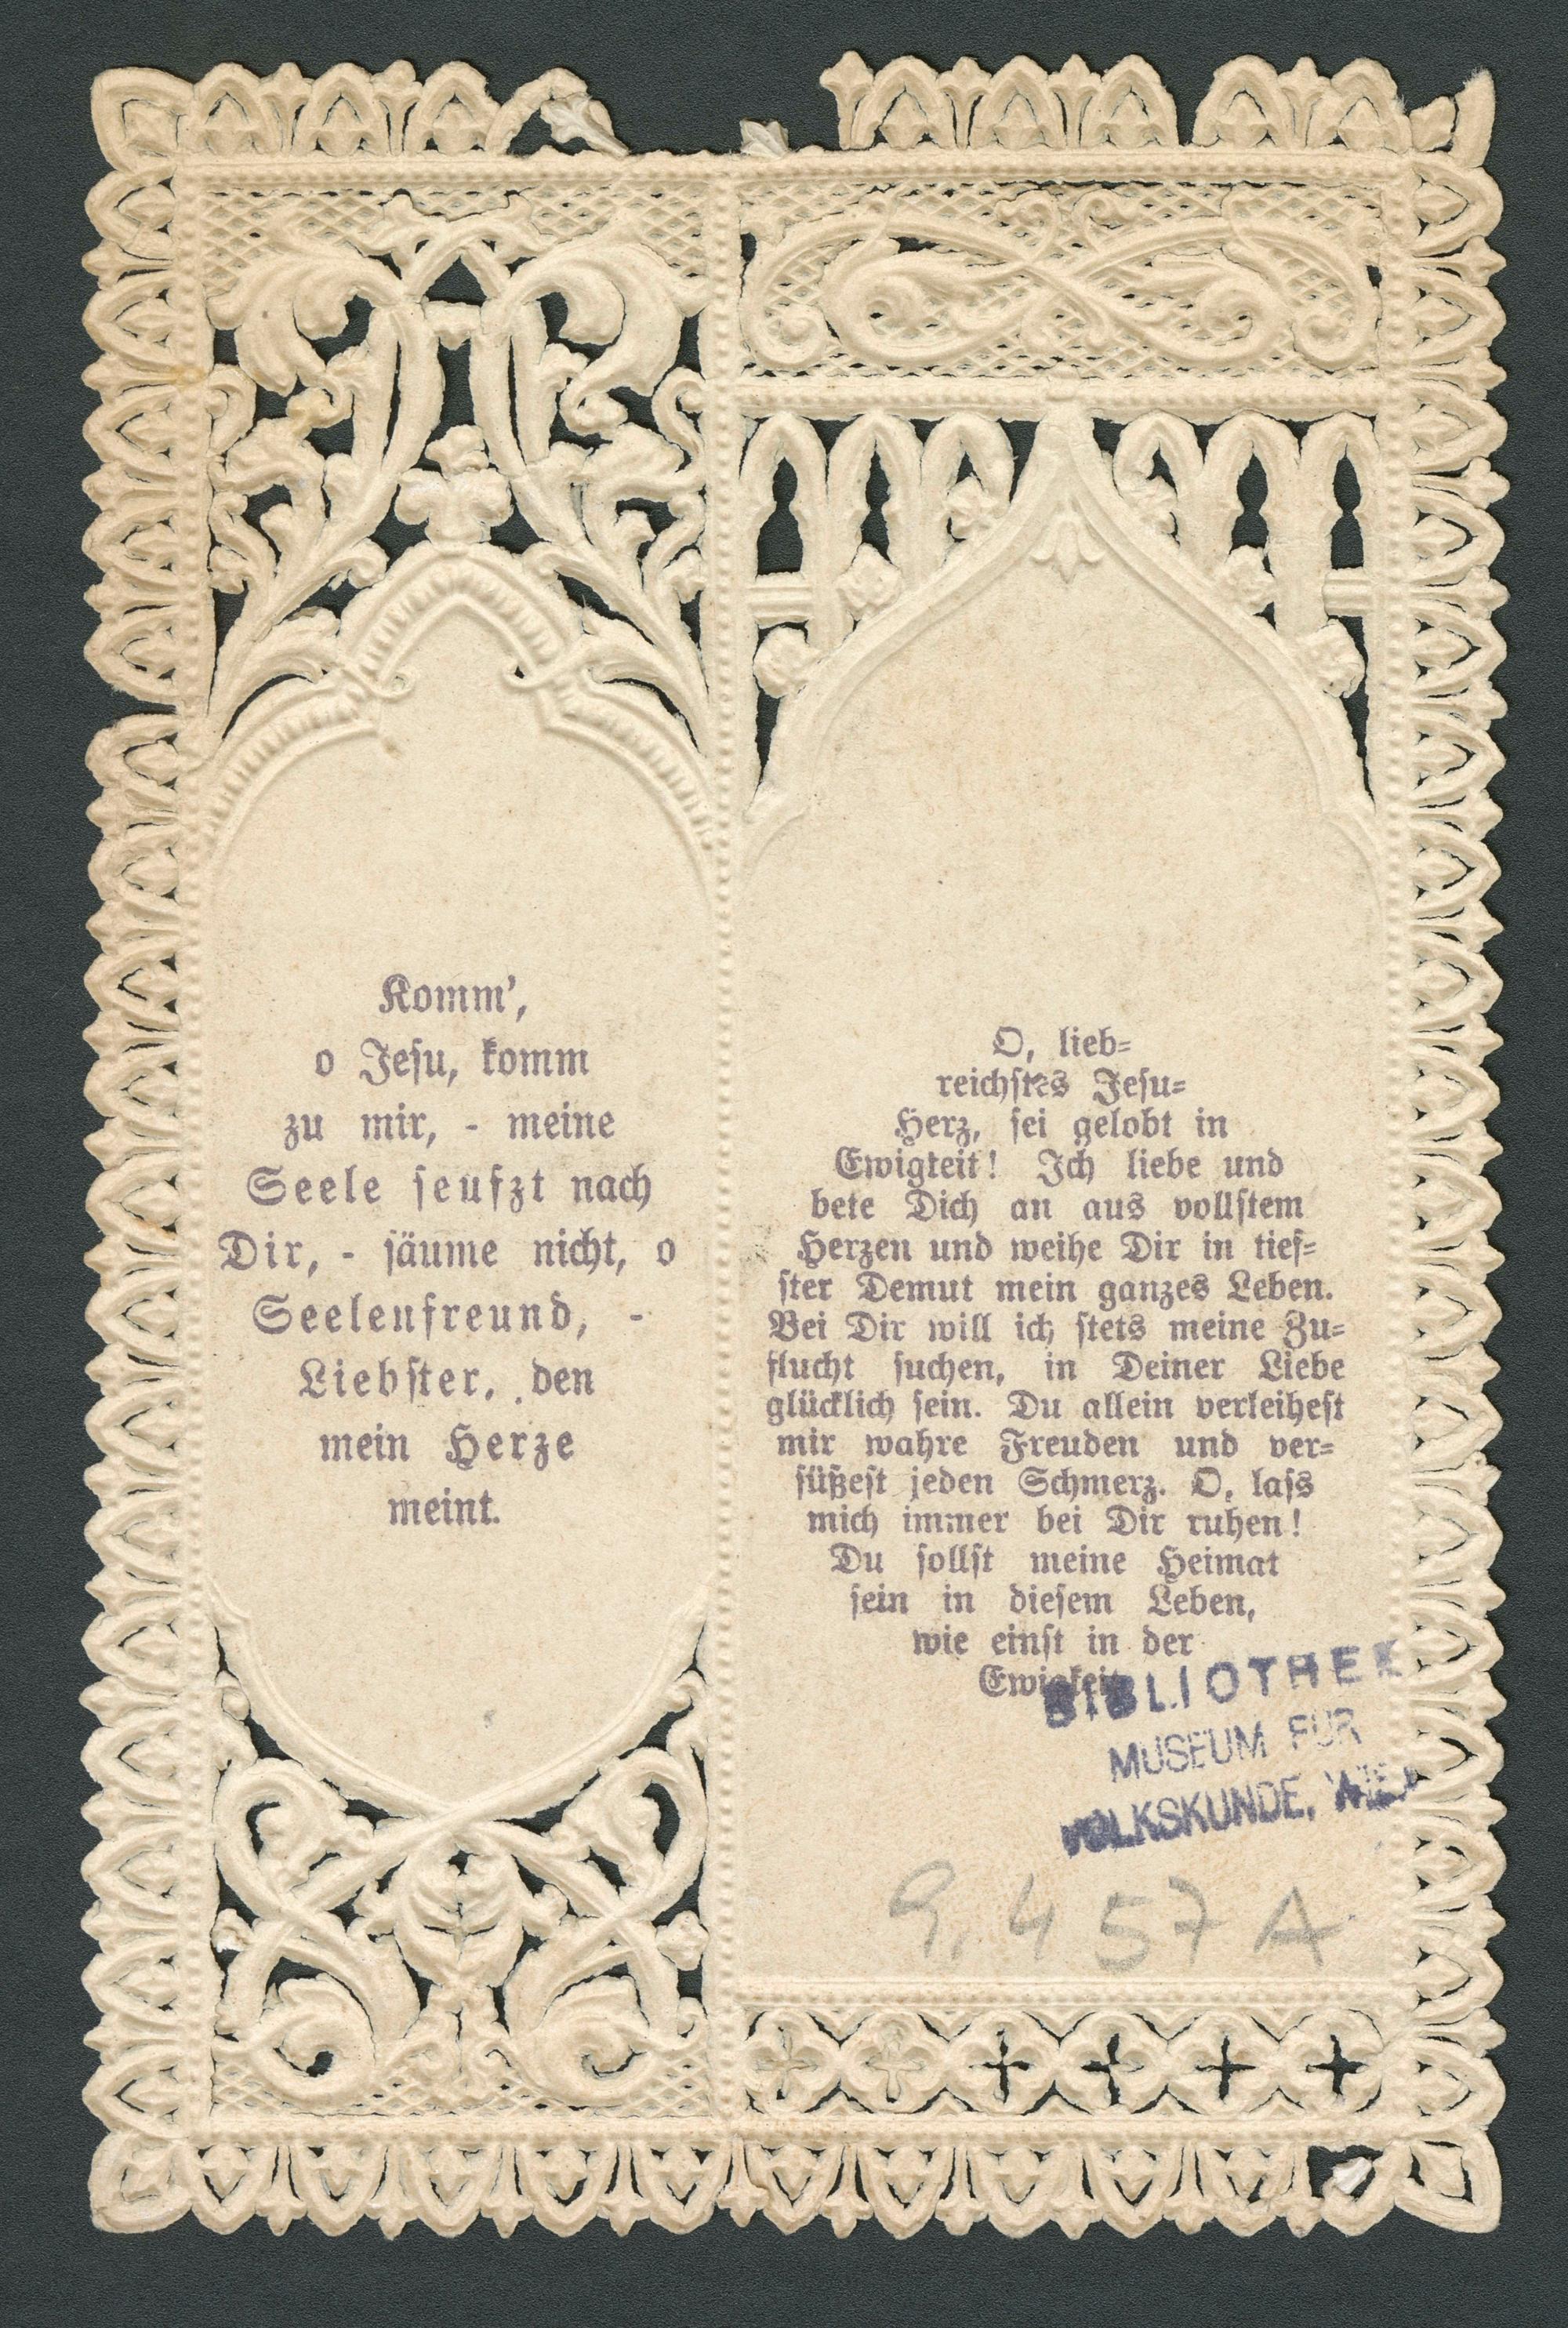 Komm',
o Jesu, komm
zu mir, - meine
Seele seufzt nach
Dir, - säume nicht, o
Seelenfreund, -
Liebster, den
mein Herze
meint.
O, lieb=
reichstes Jesu=
Herz, sei gelobt in
Ewigkeit! Ich liebe und
bete Dich an aus vollstem
Herzen und weihe Dir in tief=
ster Demut mein ganzes Leben.
Bei Dir will ich stets meine Zu=
flucht suchen, in Deiner Liebe
glücklich sein. Du allein verleihest
mir wahre Freuden und ver=
süßest jeden Schmerz. O, lass
mich immer bei Dir ruhen!
Du sollst meine Heimat
sein in diesem Leben,
wie einst in der
Ewigkeit
BIBLIOTHEK
MUSEUM FÜR
VOLKSKUNDE, WIEN
9.457 A